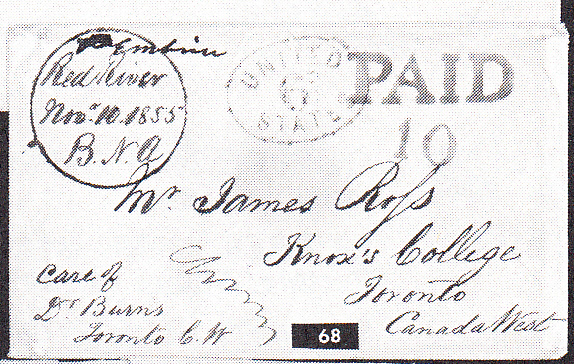 Pembina
Red River
Nov.r 10. 1855
B. N. A
UNITED
STATE
PAID
10
Mr. James Ross
Knox's College
Toronto
Canada West
care of
Dr. Burns
Toronto C. W
68